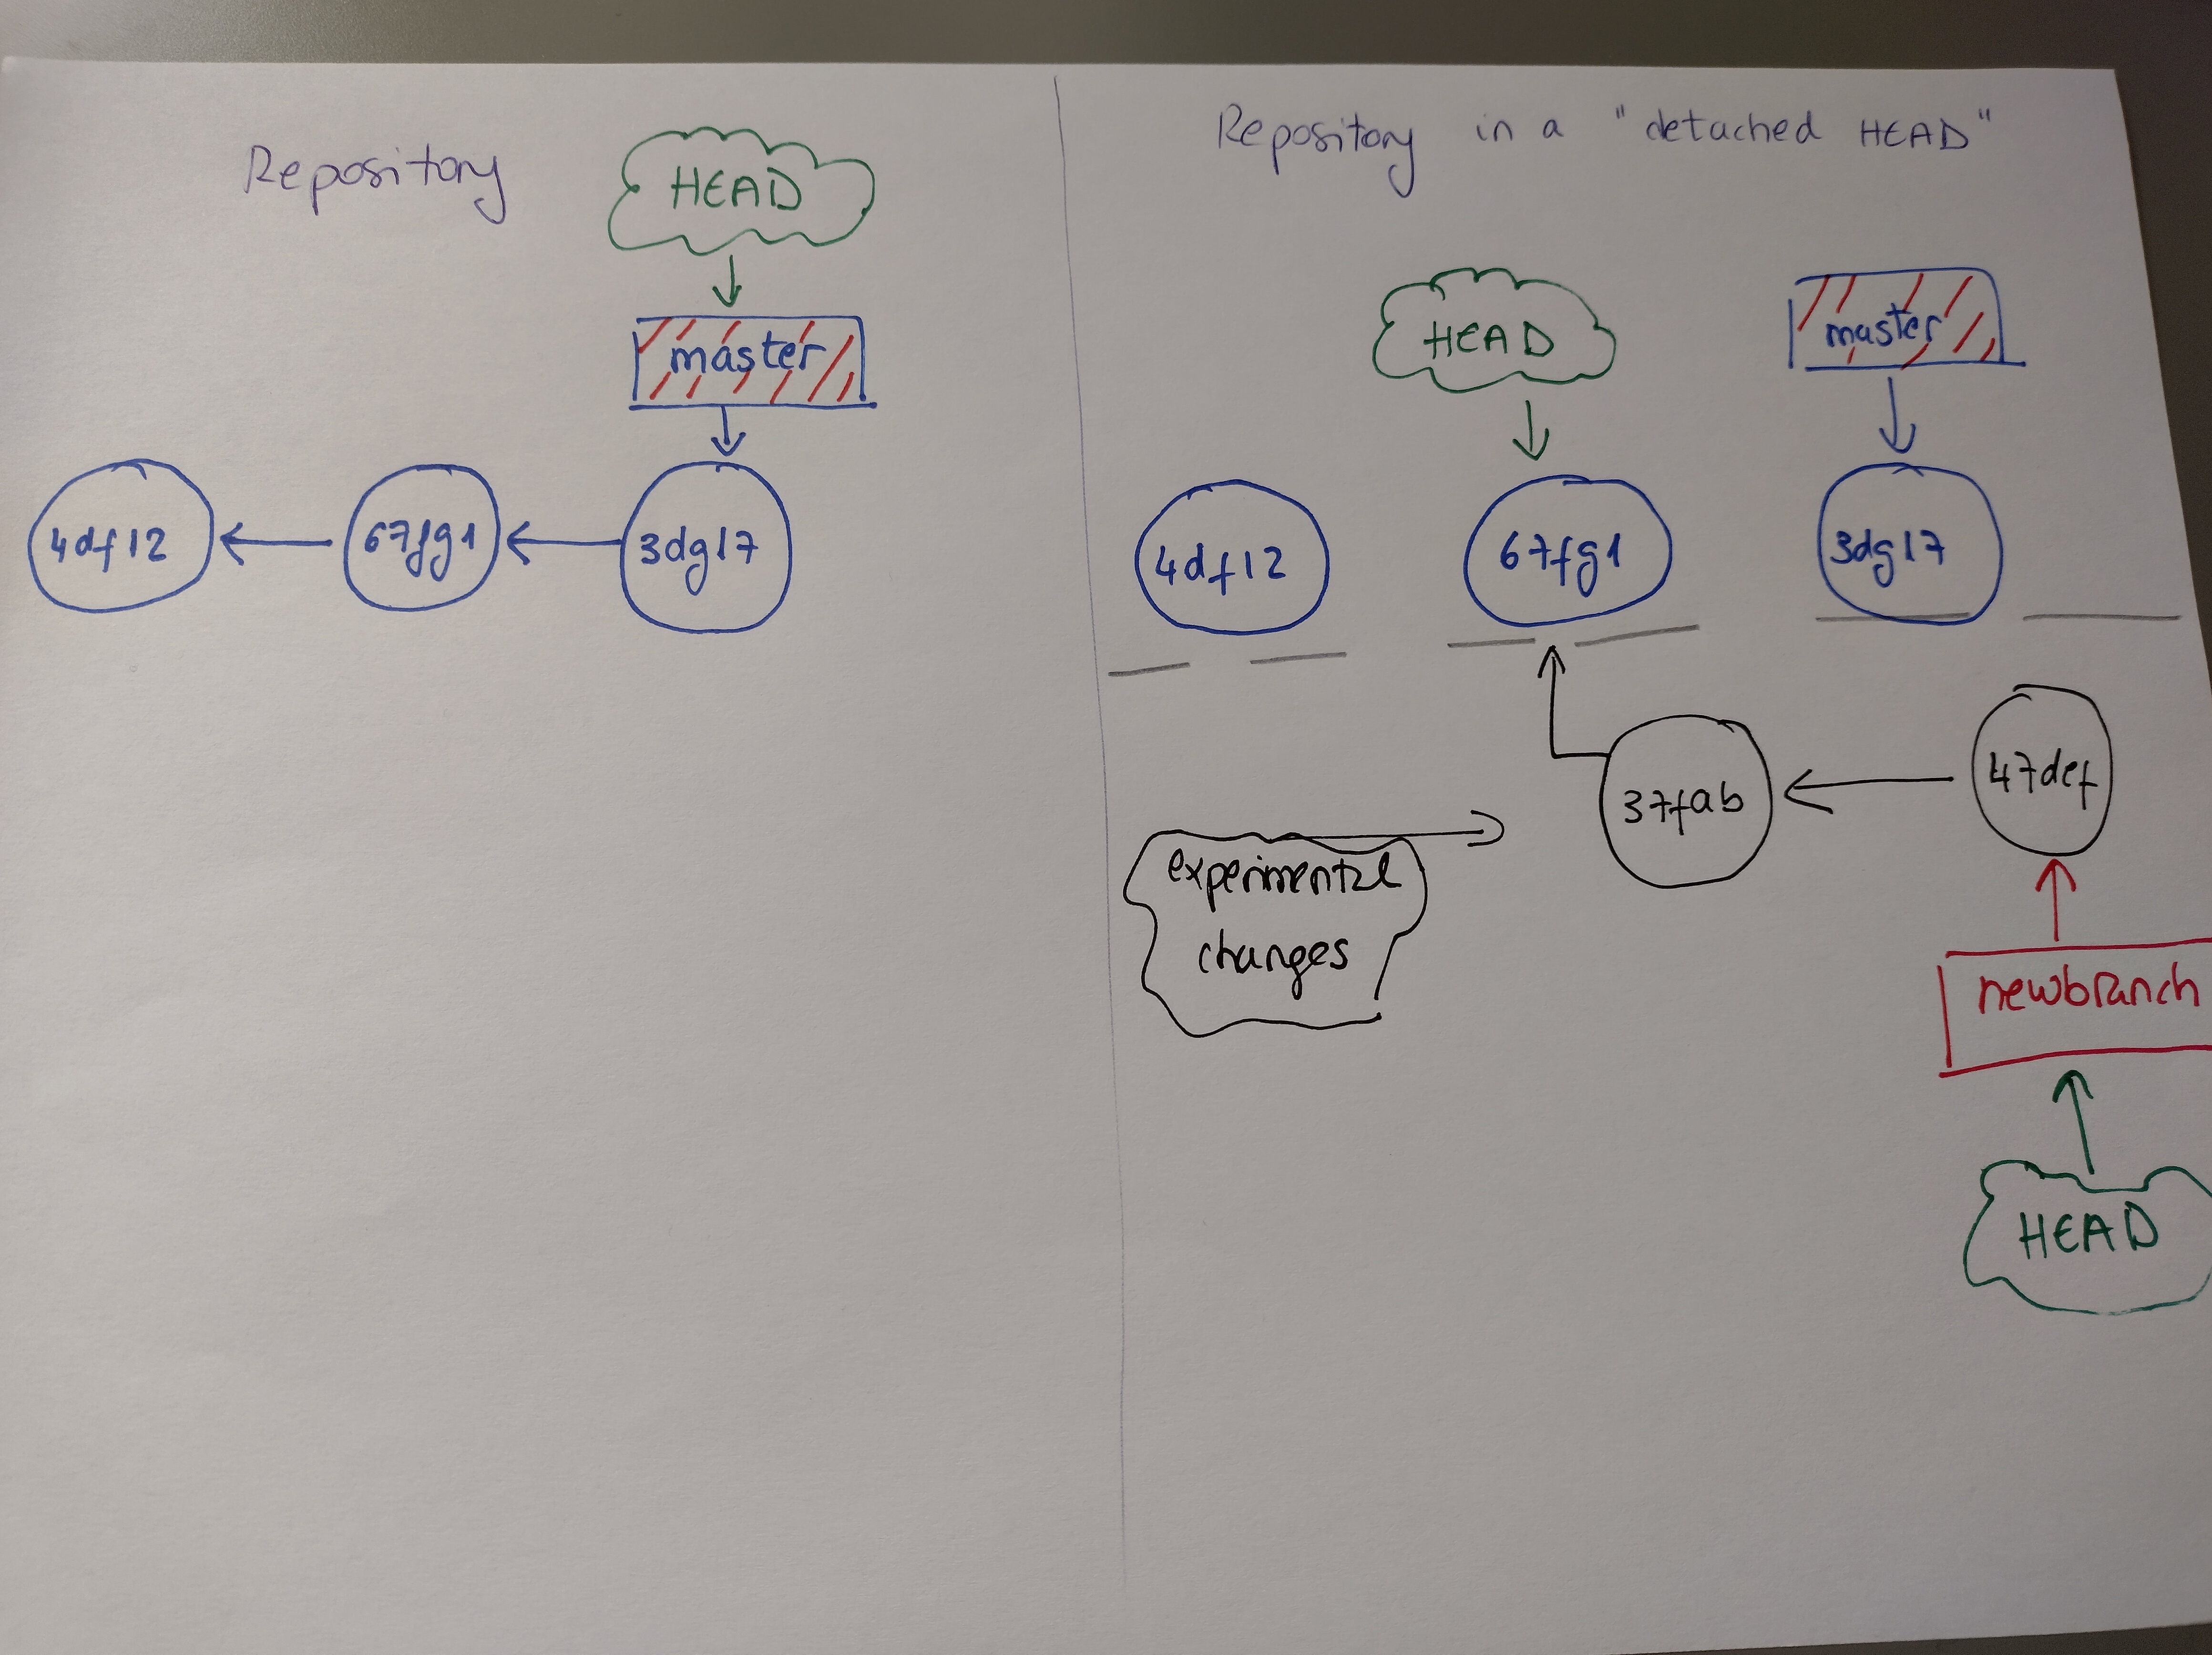 Repository
HEAD
master
4df12
67fg1
3dg17
Repository in a "detached HEAD"
HEAD
master
4df12
67fg1
3dg17
37fab
47def
experimental
changes
newbranch
HEAD